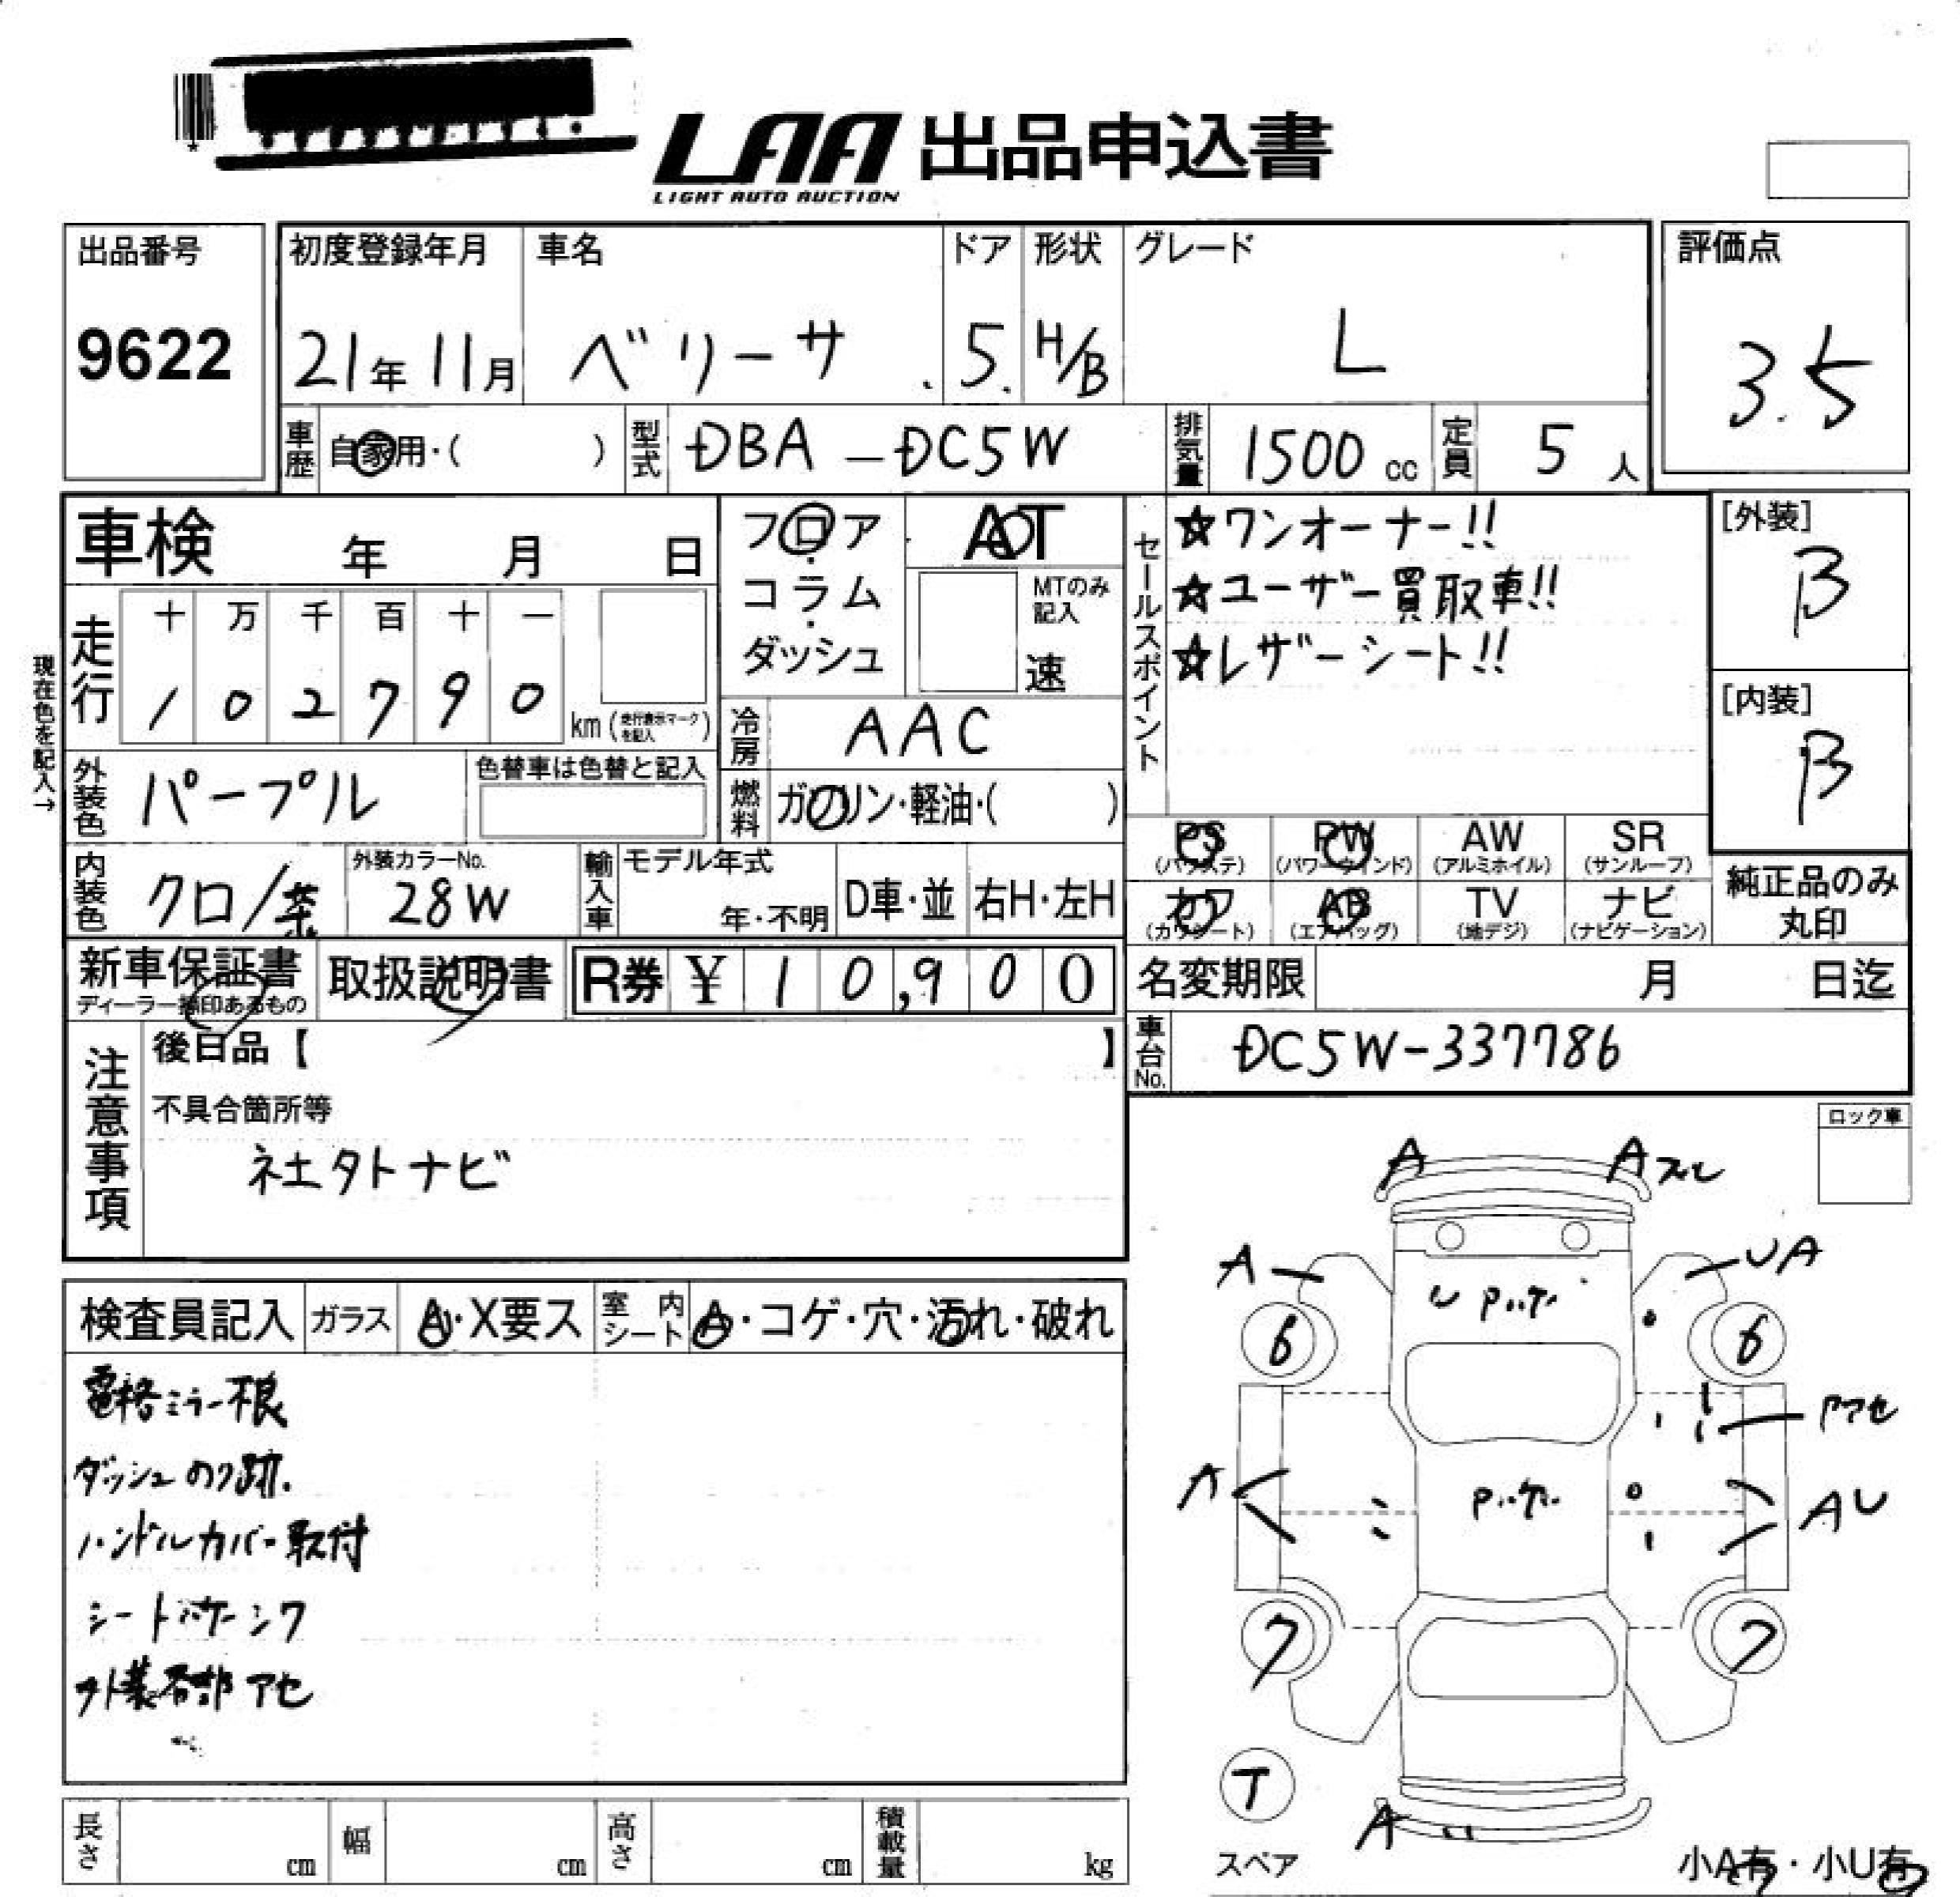 LAA 出品申込書
LIGHT AUTO AUCTION
*
出品番号
9622
初度登録年月
21年11月
車名
ベリーサ
ドア
5
形状
H/B
グレード
L
評価点
3.5
車歴
自家用・( )
型式
DBA-DC5W
排気量
1500 cc
定員
5人
車検 年 月 日
フロア・コラム・ダッシュ
AT
MTのみ記入
速
セールスポイント
☆ワンオーナー!!
☆ユーザー買取車!!
☆レザーシート!!
[外装]
B
[内装]
B
現在色を記入→
走行
十 万 千 百 十 一
1 0 2 7 9 0
km (走行表示マークを記入)
冷房
AAC
外装色
パープル
色替車は色替と記入
燃料
ガソリン・軽油・( )
内装色
クロ/茶
外装カラーNo.
28W
輸入車
モデル年式
年・不明
D車・並
右H・左H
PS (パワステ)
PW (パワーウインド)
AW (アルミホイル)
SR (サンルーフ)
カワ (カワシート)
AB (エアバッグ)
TV (地デジ)
ナビ (ナビゲーション)
純正品のみ丸印
新車保証書
ディーラー捺印あるもの
取扱説明書
R券 ¥ 10,900
名変期限 月 日迄
車台No.
DC5W-337786
注意事項
後日品【 】
不具合箇所等
社外ナビ
ロック車
検査員記入
ガラス
A・X要ス
室内シート
A・コゲ・穴・汚れ・破れ
電格ミラー不良
ダッシュのり跡.
ハンドルカバー取付
シート
外装各部アセ
A
Aスレ
A
UA
U
6
6
アセ
A
AU
7
7
T
スペア
A
小A有・小U有
長さ cm
幅 cm
高さ cm
積載量 kg